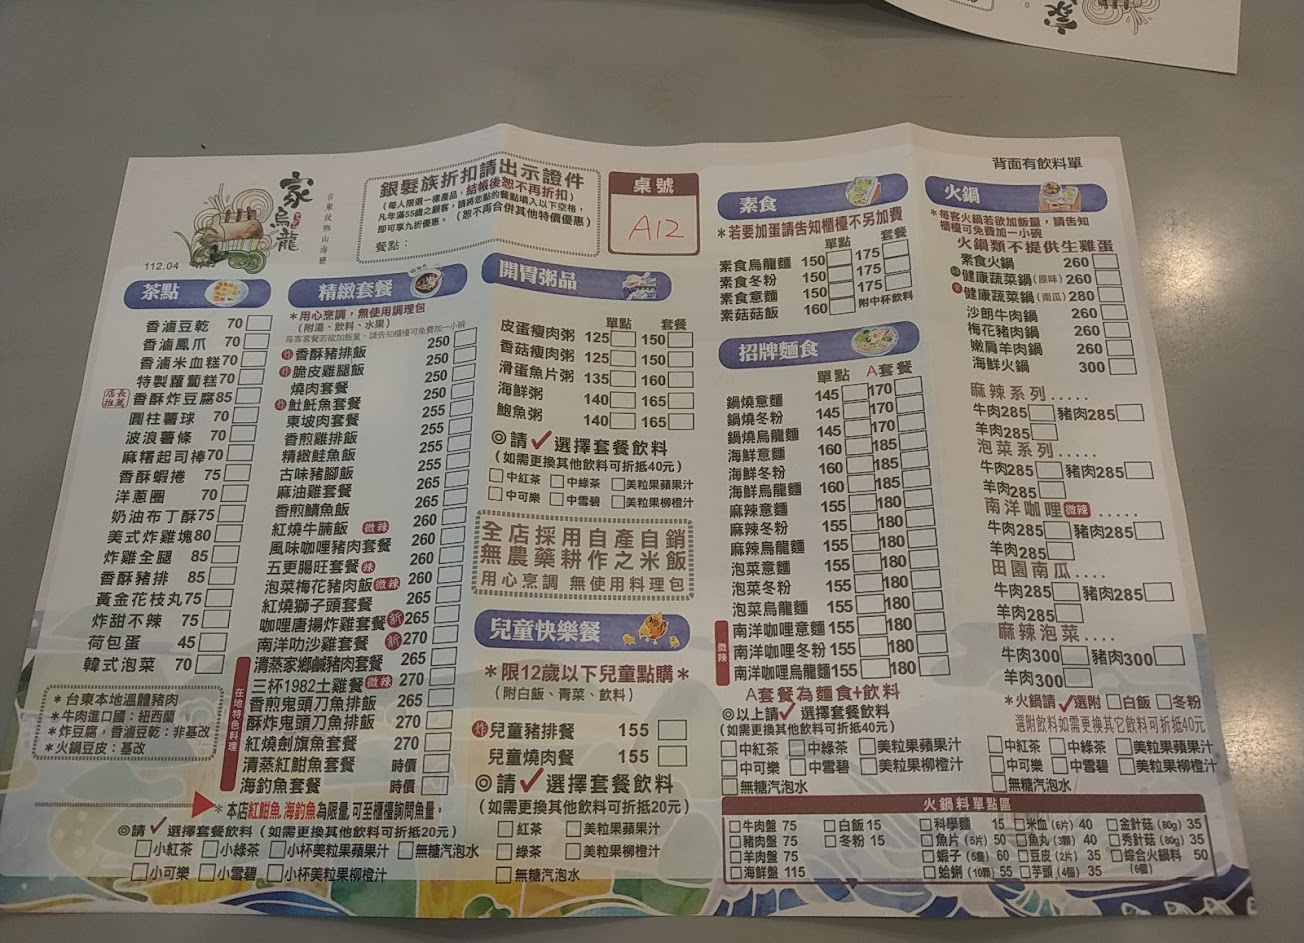 家烏龍
台東故鄉山海戀
112.04
銀髮族折扣請出示證件
(每人限選一樣產品，結帳後恕不再折扣)
凡年滿55歲之顧客，請將您點的餐點填入以下空格，
即可享九折優惠。(恕不再合併其他特價優惠)
餐點：
桌號
A12
背面有飲料單
茶點
香滷豆乾 70
香滷鳳爪 70
香滷米血糕70
特製蘿蔔糕70
店長推薦 香酥炸豆腐85
圓柱薯球 70
波浪薯條 70
麻糬起司棒70
香酥蝦捲 75
洋蔥圈 70
奶油布丁酥75
美式炸雞塊80
炸雞全腿 85
香酥豬排 85
黃金花枝丸75
炸甜不辣 75
荷包蛋 45
韓式泡菜 70
＊台東本地溫體豬肉
＊牛肉進口國：紐西蘭
＊炸豆腐，香滷豆乾：非基改
＊火鍋豆皮：基改
精緻套餐
＊用心烹調，無使用調理包
(附湯、飲料、水果)
每客套餐若欲加飯量，請告知櫃檯可免費加一小碗
炸 香酥豬排飯 250
炸 脆皮雞腿飯 250
燒肉套餐 250
炸 魠魠魚套餐 250
東坡肉套餐 255
香煎雞排飯 255
精緻鮭魚飯 255
古味豬腳飯 255
麻油雞套餐 265
香煎鯖魚飯 265
紅燒牛腩飯 微辣 260
風味咖哩豬肉套餐 260
五更腸旺套餐 辣 260
泡菜梅花豬肉飯 微辣 260
紅燒獅子頭套餐 265
咖哩唐揚炸雞套餐 新 265
南洋叻沙雞套餐 新 270
在地特色料理
清蒸家鄉鹹豬肉套餐 265
三杯1982土雞餐 微辣 270
香煎鬼頭刀魚排飯 265
酥炸鬼頭刀魚排飯 270
紅燒劍旗魚套餐 270
清蒸紅魽魚套餐 時價
海釣魚套餐 時價
＊本店紅魽魚,海釣魚為限量,可至櫃檯詢問魚量。
◎請✓選擇套餐飲料 (如需更換其他飲料可折抵20元)
□小紅茶 □小綠茶 □小杯美粒果蘋果汁 □無糖汽泡水
□小可樂 □小雪碧 □小杯美粒果柳橙汁
開胃粥品
單點 套餐
皮蛋瘦肉粥 125 150
香菇瘦肉粥 125 150
滑蛋魚片粥 135 160
海鮮粥 140 165
鮑魚粥 140 165
◎請✓選擇套餐飲料
(如需更換其他飲料可折抵40元)
□中紅茶 □中綠茶 □美粒果蘋果汁
□中可樂 □中雪碧 □美粒果柳橙汁
全店採用自產自銷
無農藥耕作之米飯
用心烹調 無使用料理包
兒童快樂餐
＊限12歲以下兒童點購＊
(附白飯、青菜、飲料)
炸 兒童豬排餐 155
兒童燒肉餐 155
◎請✓選擇套餐飲料
(如需更換其他飲料可折抵20元)
□紅茶 □美粒果蘋果汁
□綠茶 □美粒果柳橙汁
□無糖汽泡水
素食
＊若要加蛋請告知櫃檯不另加費
單點 套餐
素食烏龍麵 150 175
素食冬粉 150 175
素食意麵 150 175
素菇菇飯 160 附中杯飲料
招牌麵食
單點 A套餐
鍋燒意麵 145 170
鍋燒冬粉 145 170
鍋燒烏龍麵 145 170
海鮮意麵 160 185
海鮮冬粉 160 185
海鮮烏龍麵 160 185
麻辣意麵 155 180
麻辣冬粉 155 180
麻辣烏龍麵 155 180
泡菜意麵 155 180
泡菜冬粉 155 180
泡菜烏龍麵 155 180
微辣
南洋咖哩意麵 155 180
南洋咖哩冬粉 155 180
南洋咖哩烏龍麵155 180
A套餐為麵食+飲料
◎以上請✓選擇套餐飲料
(如需更換其他飲料可折抵40元)
□中紅茶 □中綠茶 □美粒果蘋果汁
□中可樂 □中雪碧 □美粒果柳橙汁
□無糖汽泡水
火鍋
＊每客火鍋若欲加飯量，請告知
櫃檯可免費加一小碗
火鍋類不提供生雞蛋
素食火鍋 260
健康蔬菜鍋(原味) 260
健康蔬菜鍋(南瓜) 280
沙朗牛肉鍋 260
梅花豬肉鍋 260
嫩肩羊肉鍋 260
海鮮火鍋 300
麻辣系列.....
牛肉285 豬肉285
羊肉285
泡菜系列.....
牛肉285 豬肉285
羊肉285
南洋咖哩 微辣.....
牛肉285 豬肉285
羊肉285
田園南瓜....
牛肉285 豬肉285
羊肉285
麻辣泡菜....
牛肉300 豬肉300
羊肉300
＊火鍋請✓選附□白飯□冬粉
選附飲料如需更換其它飲料可折抵40元
□中紅茶 □中綠茶 □美粒果蘋果汁
□中可樂 □中雪碧 □美粒果柳橙汁
□無糖汽泡水
火鍋料單點區
□牛肉盤 75 □白飯 15 □科學麵 15 □米血(6片) 40 □金針菇(80g) 35
□豬肉盤 75 □冬粉 15 □魚片(5片) 50 □魚丸(3顆) 40 □秀針菇(80g) 35
□羊肉盤 75 □蝦子(5隻) 60 □豆皮(2片) 35 □綜合火鍋料 50
□海鮮盤 115 □蛤蜊(10顆) 55 □芋頭(4個) 35 (6個)